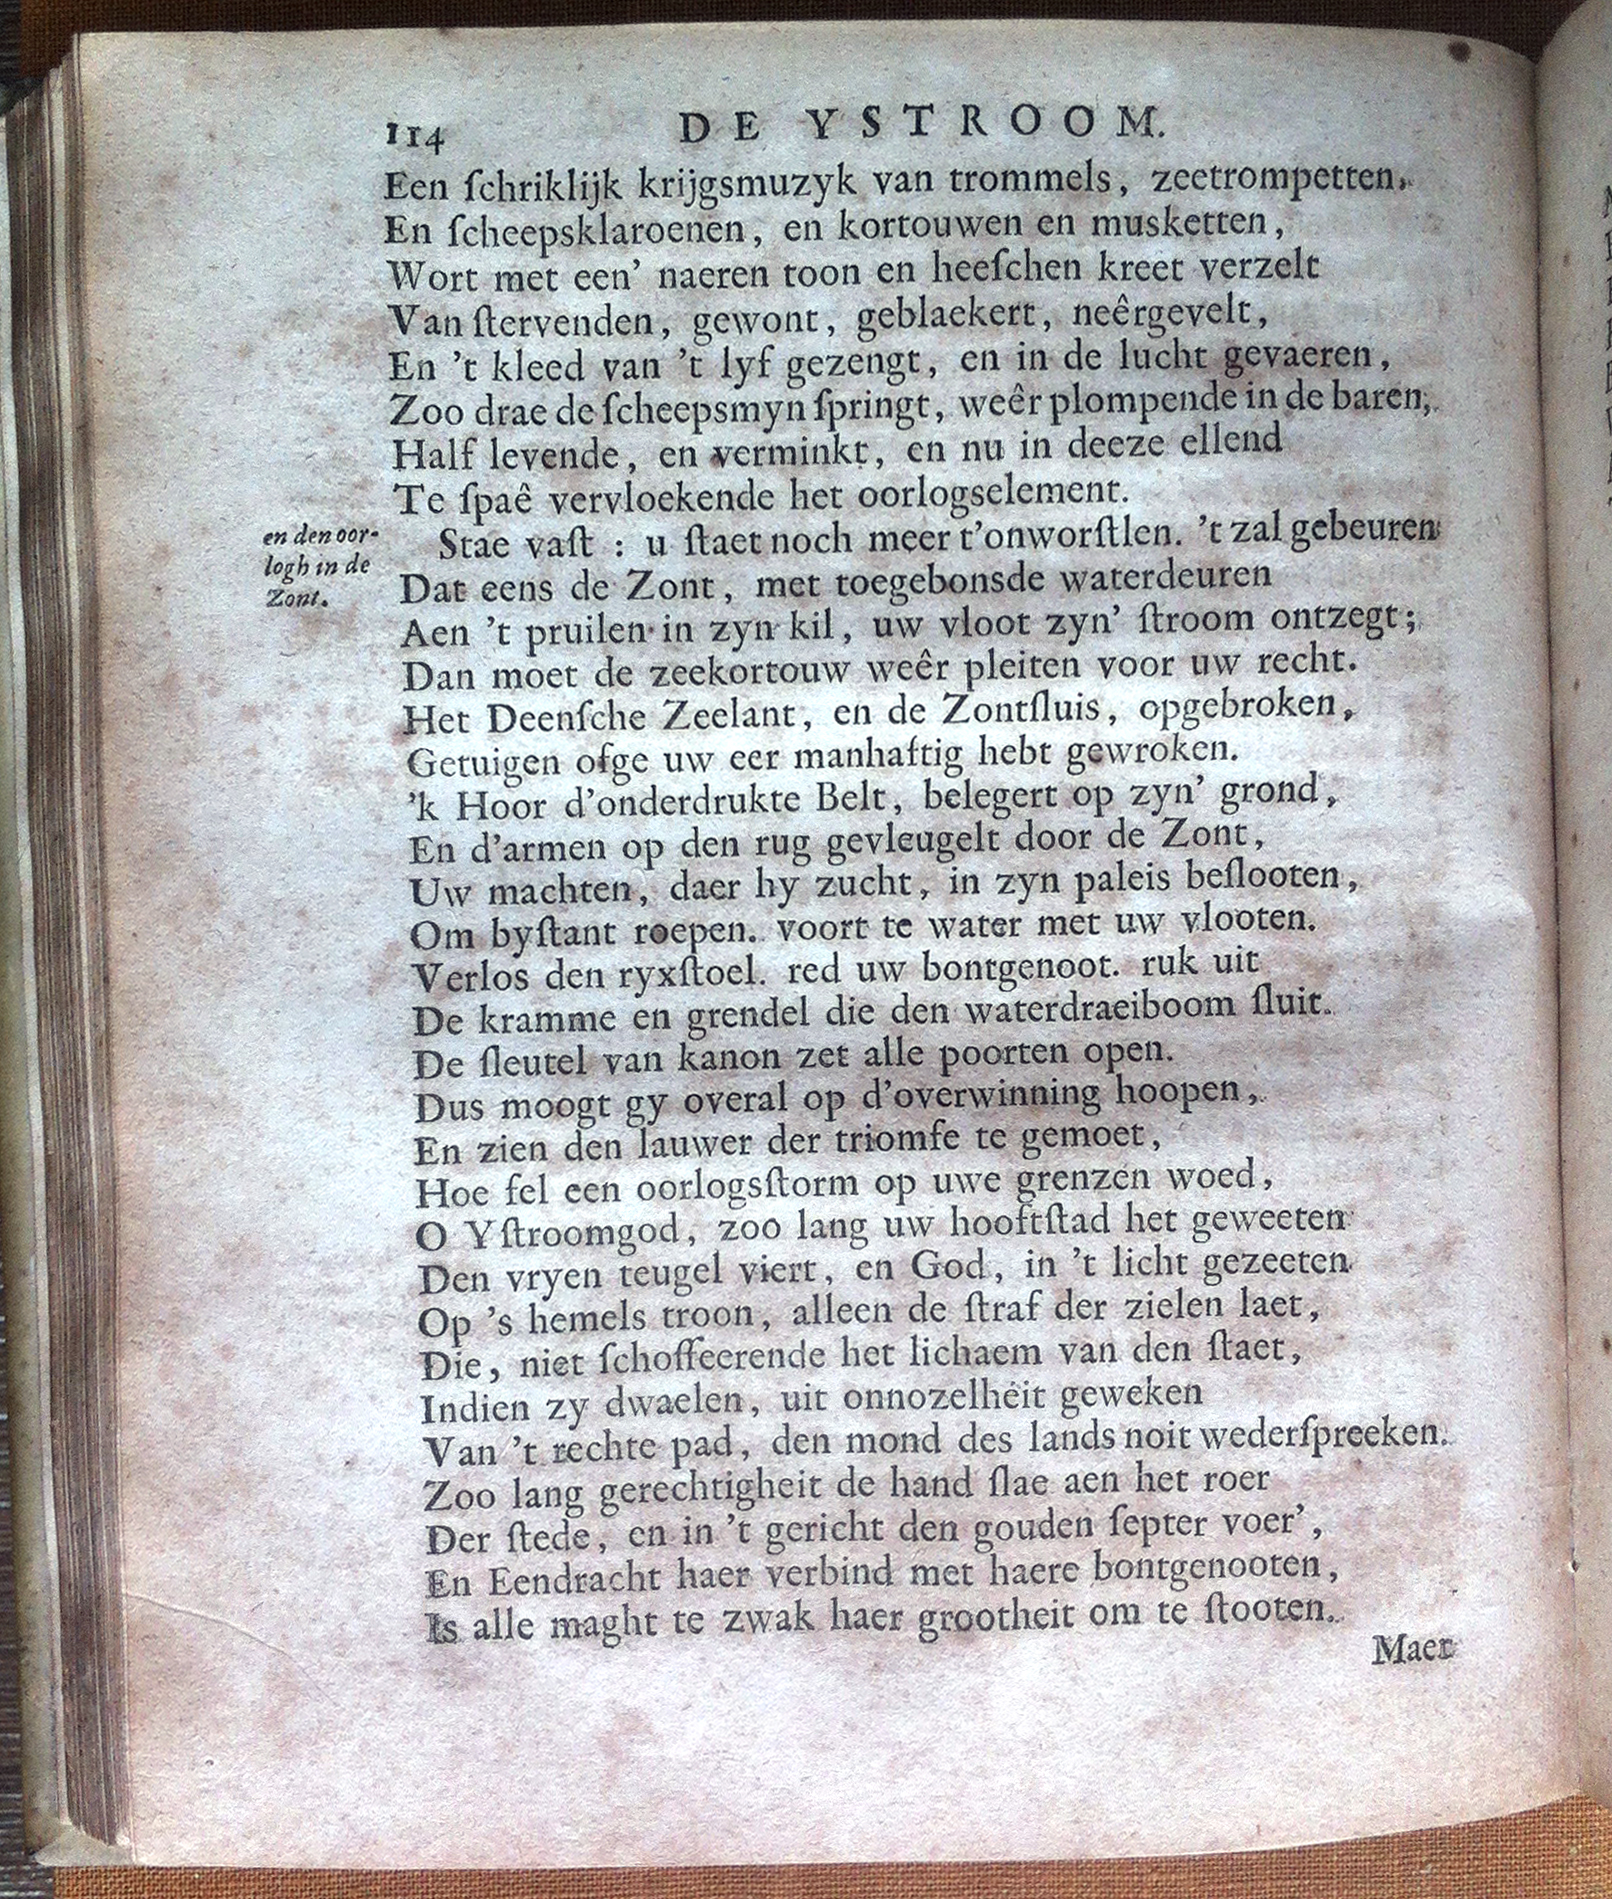 114 DE YSTROOM.
Een ſchriklijk krijgsmuzyk van trommels, zeetrompetten,
En ſcheepsklaroenen, en kortouwen en musketten,
Wort met een' naeren toon en heeſchen kreet verzelt
Van ſtervenden, gewont, geblaekert, neêrgevelt,
En 't kleed van 't lyf gezengt, en in de lucht gevaeren,
Zoo drae de ſcheepsmyn ſpringt, weêr plompende in de baren,
Half levende, en verminkt, en nu in deeze ellend
Te ſpaê vervloekende het oorlogselement.
en den oor-
logh in de
Zont.
Stae vaſt : u ſtaet noch meer t'onworſtlen. 't zal gebeuren
Dat eens de Zont, met toegebonsde waterdeuren
Aen 't pruilen in zyn kil, uw vloot zyn' ſtroom ontzegt;
Dan moet de zeekortouw weêr pleiten voor uw recht.
Het Deenſche Zeelant, en de Zontſluis, opgebroken,
Getuigen ofge uw eer manhaftig hebt gewroken.
'k Hoor d'onderdrukte Belt, belegert op zyn' grond,
En d'armen op den rug gevleugelt door de Zont,
Uw machten, daer hy zucht, in zyn paleis beſlooten,
Om byſtant roepen. voort te water met uw vlooten.
Verlos den ryxſtoel. red uw bontgenoot. ruk uit
De kramme en grendel die den waterdraeiboom ſluit.
De ſleutel van kanon zet alle poorten open.
Dus moogt gy overal op d'overwinning hoopen,
En zien den lauwer der triomfe te gemoet,
Hoe fel een oorlogsſtorm op uwe grenzen woed,
O Yſtroomgod, zoo lang uw hooftſtad het geweeten
Den vryen teugel viert, en God, in 't licht gezeeten
Op 's hemels troon, alleen de ſtraf der zielen laet,
Die, niet ſchoffeerende het lichaem van den ſtaet,
Indien zy dwaelen, uit onnozelheit geweken
Van 't rechte pad, den mond des lands noit wederſpreeken.
Zoo lang gerechtigheit de hand ſlae aen het roer
Der ſtede, en in 't gericht den gouden ſepter voer',
En Eendracht haer verbind met haere bontgenooten,
Is alle maght te zwak haer grootheit om te ſtooten.
Maer